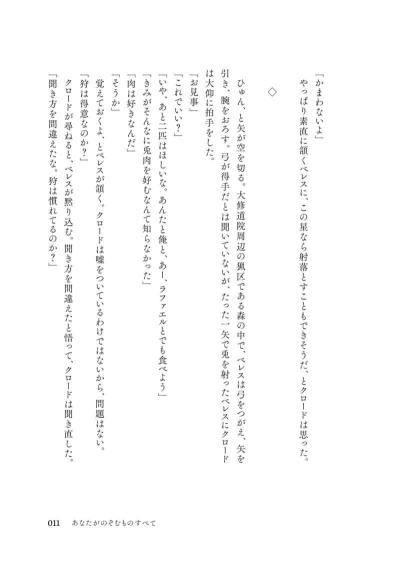 「かまわないよ」
やっぱり素直に頷くベレスに、この星なら射落とすこともできそうだ、とクロードは思った。
◇
ひゅん、と矢が空を切る。大修道院周辺の猟区である森の中で、ベレスは弓をつがえ、矢を
引き、腕をおろす。弓が得手だとは聞いていないが、たった一矢で兎を射ったベレスにクロード
は大仰に拍手をした。
「お見事」
「これでいい?」
「いや、あと二匹はほしいな。あんたと俺と、あー、ラファエルとでも食べよう」
「きみがそんなに兎肉を好むなんて知らなかった」
「肉は好きなんだ」
「そうか」
覚えておくよ、とベレスが頷く。クロードは嘘をついているわけではないから、問題はない。
「狩は得意なのか?」
クロードが尋ねると、ベレスが黙り込む。聞き方を間違えたと悟って、クロードは聞き直した。
「聞き方を間違えたな。狩は慣れてるのか?」
011 あなたがのぞむものすべて